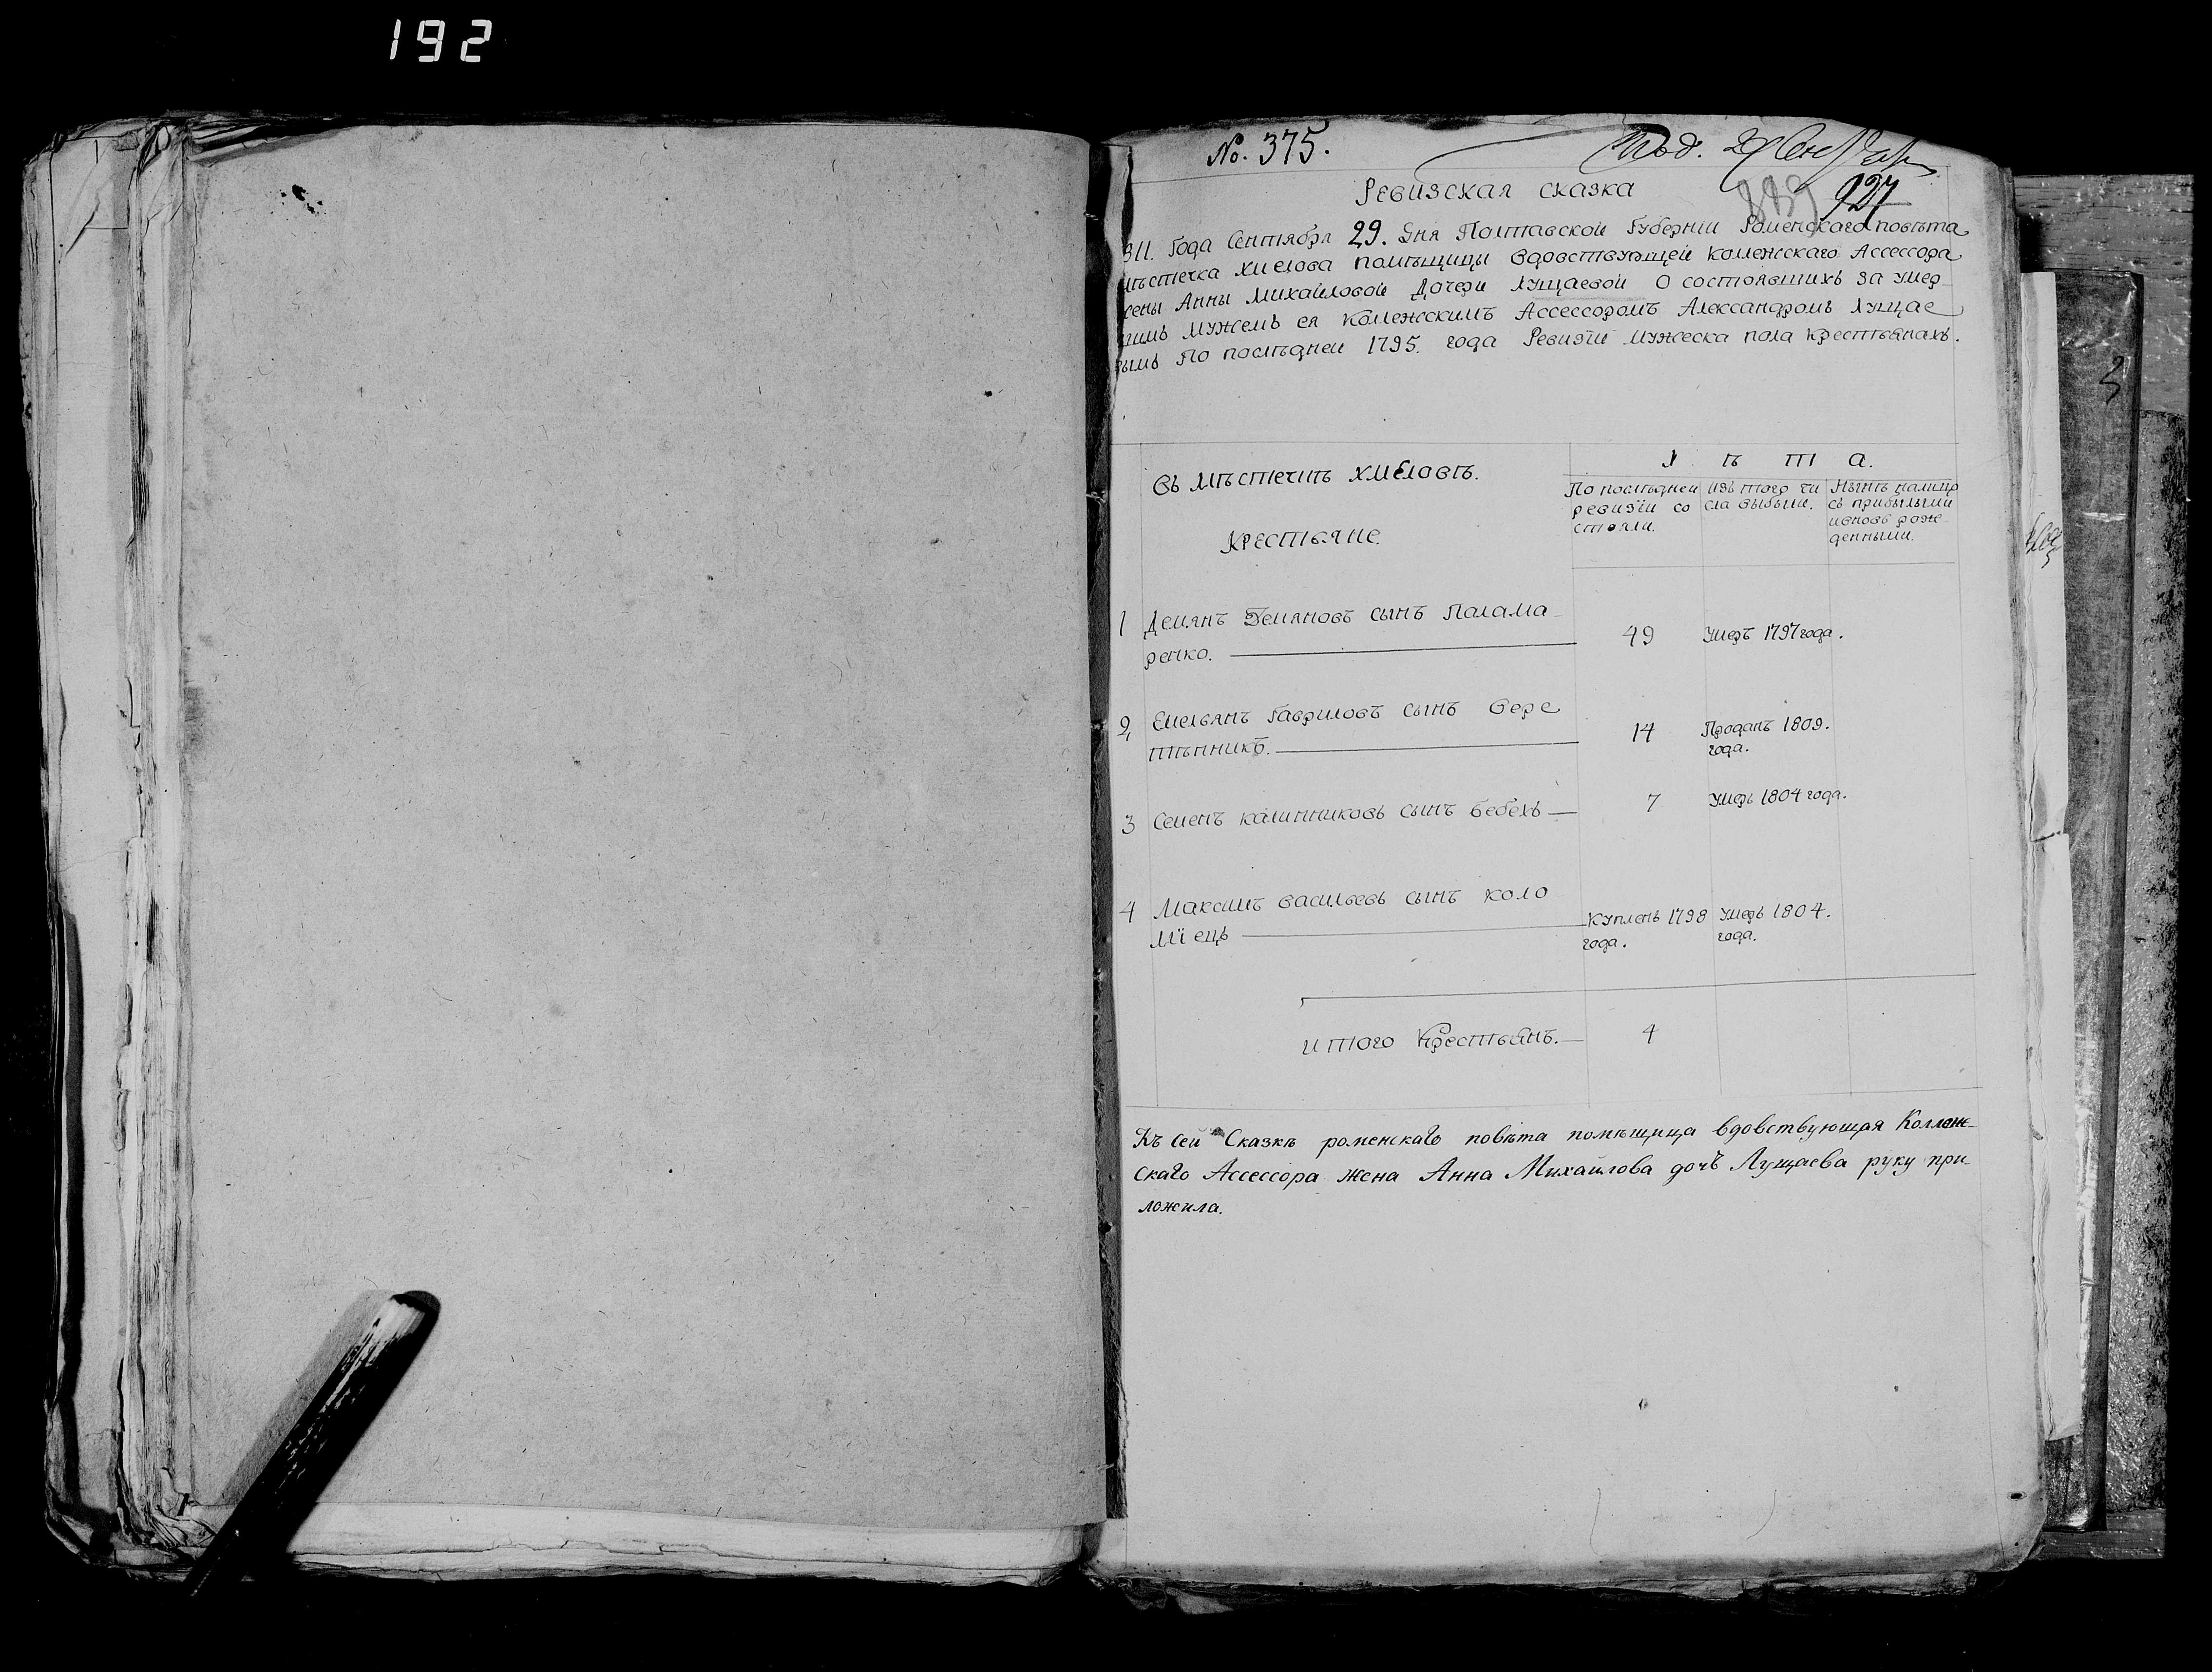 192
No. 375.
Ревизская сказка
927
811. Года Сентября 29. Дня Полтавской Губернїи Роменскаго повѣта
мѣстечка Хмелова помѣщицы вдовствующей Колежскаго Ассессора
жены Анны Михайловой Дочери Лущаевой О состоявшихъ за умер-
шимъ мужемъ ея Колежскимъ Ассессоромъ Александромъ Лущае
вымъ По послѣдней 1795. года Ревизїи мужеска пола крестьянахъ.
Въ мѣстечкѣ Хмѣловѣ.
Крестьяне.
Лѣта.
По послѣдней ревизїи со стояли.
изъ того чи сла выбыли.
Нынѣ налицо съ прибылыми ивновь рожденными.
1 Демянъ Демяновъ сынъ Палама-
ренко. 49 умеръ 1797 года.
2, Емельянъ Гавриловъ сынъ Вере
тѣнникъ. 14 Проданъ 1809. года.
3 Семенъ Калинниковъ сынъ Бебехъ 7 умеръ 1804 года.
4 Максимъ Васильевъ сынъ Коло
мїецъ Купленъ 1798 года. умеръ 1804. года.
итого Крестьянъ. 4
Къ сей Сказкѣ роменскаго повѣта помѣщица вдовствующая Коллеж-
скаго Ассессора жена Анна Михайлова дочъ Лущаева руку при-
ложила.